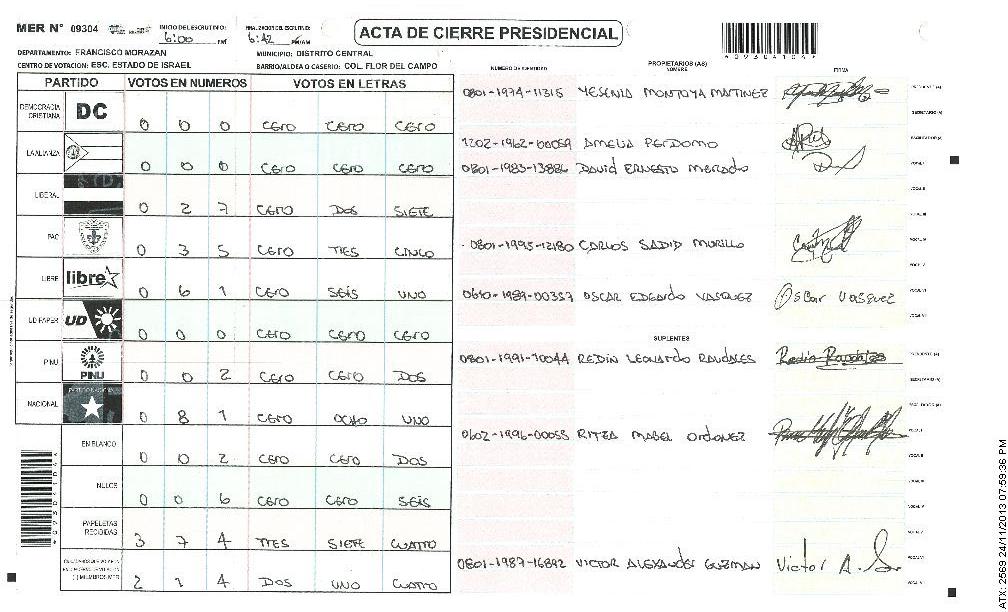 MER N° 09304 INICIO DEL ESCRUTINIO: 6:00 PM 6:42 PM/AM ACTA DE CIERRE PRESIDENCIAL
DEPARTAMENTO: FRANCISCO MORAZAN MUNICIPIO: DISTRITO CENTRAL
CENTRO DE VOTACION: ESC. ESTADO DE ISRAEL BARRIO/ALDEA O CASERIO: COL. FLOR DEL CAMPO
NUMERO DE IDENTIDAD PROPIETARIOS (AS) NOMBRE FIRMA
PARTIDO VOTOS EN NUMEROS VOTOS EN LETRAS
DEMOCRACIA CRISTIANA DC 0 0 0 CERO CERO CERO
LA ALIANZA 0 0 0 CERO CERO CERO
LIBERAL 0 2 7 CERO DOS SIETE
PAC 0 3 5 CERO TRES CINCO
LIBRE libre 0 6 1 CERO SEIS UNO
UD FAPER UD 0 0 0 CERO CERO CERO
PINU PINU 0 0 2 CERO CERO DOS
NACIONAL 0 8 1 CERO OCHO UNO
EN BLANCO 0 0 2 CERO CERO DOS
NULOS 0 0 6 CERO CERO SEIS
PAPELETAS RECIBIDAS 3 7 4 TRES SIETE CUATRO
2 1 4 DOS UNO CUATRO
0801-1974-11315 YESENIA MONTOYA MARTINEZ
1202-1962-00059 AMELIA PERDOMO
DAVID ERNESTO
0801-1995-12180 CARLOS SADID MURILLO
OSCAR EDGARDO VASQUEZ Oscar Vasquez
SUPLENTES
0801-1991-10044 REDIN LEONARDO RAUDALES
0602-1996-00055 MABEL ORDOÑEZ
0801-1987-16892 VICTOR ALEXANDER GUZMAN Victor A.
ATX: 2569 24/11/2013 07:59:36 PM